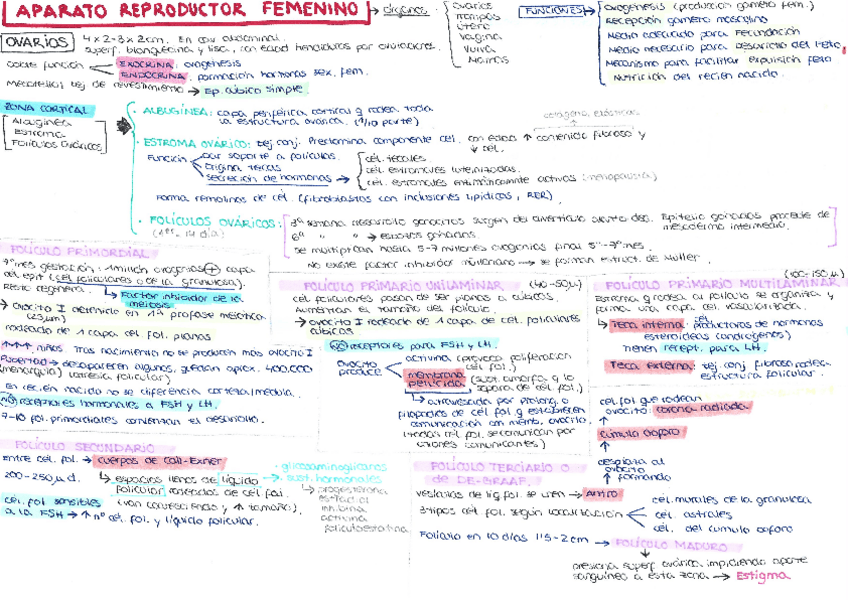 APARATO REPRODUCTOR FEMENINO → órganos
Ovarios
Trompas
Útero
Vagina
Vulva
Mamas
FUNCIONES
Ovogénesis (producción gameto fem.)
Recepción gameto masculino
Medio adecuado para Fecundación
Medio necesario para desarrollo del feto
Mecanismo para facilitar expulsión feto
Nutrición del recién nacido.
OVARIOS
4 x 2-3 x 2cm. En cav abdominal.
superf. blanquecina y lisa, con edad hendiduras por ovulaciones.
Doble función
EXOCRINA: ovogénesis
ENDOCRINA: formación hormonas sex. fem.
Mesotelio: tej de revestimiento → Ep. cúbico simple.
ZONA CORTICAL
Albugínea
Estroma
Folículos Ováricos
· ALBUGÍNEA: capa periférica cortical q rodea toda
la estructura ovárica. (1/10 parte)
colágeno, elásticas
· ESTROMA OVÁRICO: tej conj. Predomina componente cel. con edad ↑ contenido fibroso y
↓ cel.
Función
dar soporte a folículos.
origina tecas
secreción de hormonas →
cél. tecales
cél. estromales luteinizadas.
cél. estromales enzimáticamente activas (menopausia)
Forma remolinos de cél. (fibroblastos con inclusiones lipídicas, RER)
· FOLÍCULOS OVÁRICOS:
(1er - 14 día)
se multiplican hasta 5-7 millones ovogonias final 5º-7º mes.
No existe factor inhibidor mülleriano → se forman estruct. de Müller.
FOLÍCULO PRIMORDIAL
7º mes gestación: 1 millón ovogonias + capa
cél epit (cél foliculares o de la granulosa).
Resto degenera.
Factor inhibidor de la
meiosis
→ ovocito I detenido en 1ª profase meiótica
(25µm)
rodeado de 1 capa cél fol. planas
Tras nacimiento no se producen más ovocito I
Pubertad → desaparecen algunos, quedan aprox. 400.000
(menarquia) (atresia folicular)
En recién nacido no se diferencia corteza/médula.
NO receptores hormonales a FSH y LH.
7-10 fol. primordiales comienzan el desarrollo.
FOLÍCULO PRIMARIO UNILAMINAR (40-50µ)
cél foliculares pasan de ser planas a cúbicas.
Aumentan el tamaño del folículo.
→ ovocito I rodeado de 1 capa de cél foliculares
cúbicas
receptores para FSH y LH.
ovocito
produce
activina (provoca proliferación
cél fol.)
membrana
pelúcida
(sust. amorfa q lo
separa de cél fol.)
→ atravesada por prolong. o
propodios de cél fol q establecen
comunicación con memb. ovocito.
(todas cél fol. se comunican por
uniones comunicantes)
FOLÍCULO PRIMARIO MULTILAMINAR (100-150µ)
Estroma q rodea al folículo se organiza y
forma una capa cél. vascularizada.
→ Teca interna: cél productoras de hormonas
esteroideas (andrógenos)
tienen recept. para LH.
Teca externa: tej conj fibroso rodea
estructura folicular.
FOLÍCULO SECUNDARIO
Entre cél fol. → cuerpos de Call-Exner
200-250µ d.
→ espacios llenos de líquido
folicular rodeados de cél fol.
(van coalesciendo y ↑ tamaño).
· glicosaminoglicanos
· sust. hormonales
→ progesterona
estradiol
inhibina
activina
foliculoestatina
cél. fol sensibles
a la FSH → ↑ nº cél. fol. y líquido folicular.
FOLÍCULO TERCIARIO O
de DE-GRAAF.
vesículas de líq fol. se unen → ANTRO
3 tipos cél fol. según localización
cél. murales de la granulosa
cél. astrales
cél. del cúmulo ooforo
cél fol que rodean
ovocito: corona radiada
↑
cúmulo ooforo
↑
desplaza al
ovocito
formando
Folículo en 10 días 1'5-2cm → FOLÍCULO MADURO
↓
presiona superf ovárica impidiendo aporte
sanguíneo a esta zona → Estigma